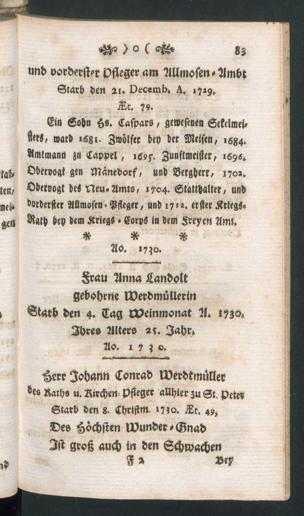 ) o ( 83
und vorderster Pfleger am Allmosen-Ambt
Starb den 21. Decemb. A. 1729.
Æt. 79.
Ein Sohn Hs. Caspars, gewesenen Seckelmei-
sters, ward 1681. Zwölfer bey der Meisen, 1684.
Amtmann zu Cappel, 1695. Zunftmeister, 1696.
Obervogt gen Männedorf, und Bergherr, 1702.
Obervogt des Neu-Amts, 1704. Statthalter, und
vorderster Allmosen-Pfleger, und 1712. erster Kriegs-
Rath bey dem Kriegs-Corps in dem Freyen Amt.
* * *
Ao. 1730.
Frau Anna Landolt
gebohrne Werdmüllerin
Starb den 4. Tag Weinmonat A. 1730.
Ihres Alters 25. Jahr.
Ao. 1730.
Herr Johann Conrad Werdtmüller
des Raths u. Kirchen-Pfleger allhier zu St. Peter
Starb den 8. Christm. 1730. Æt. 49.
Des Höchsten Wunder-Gnad
Ist groß auch in den Schwachen
F 2 Bey